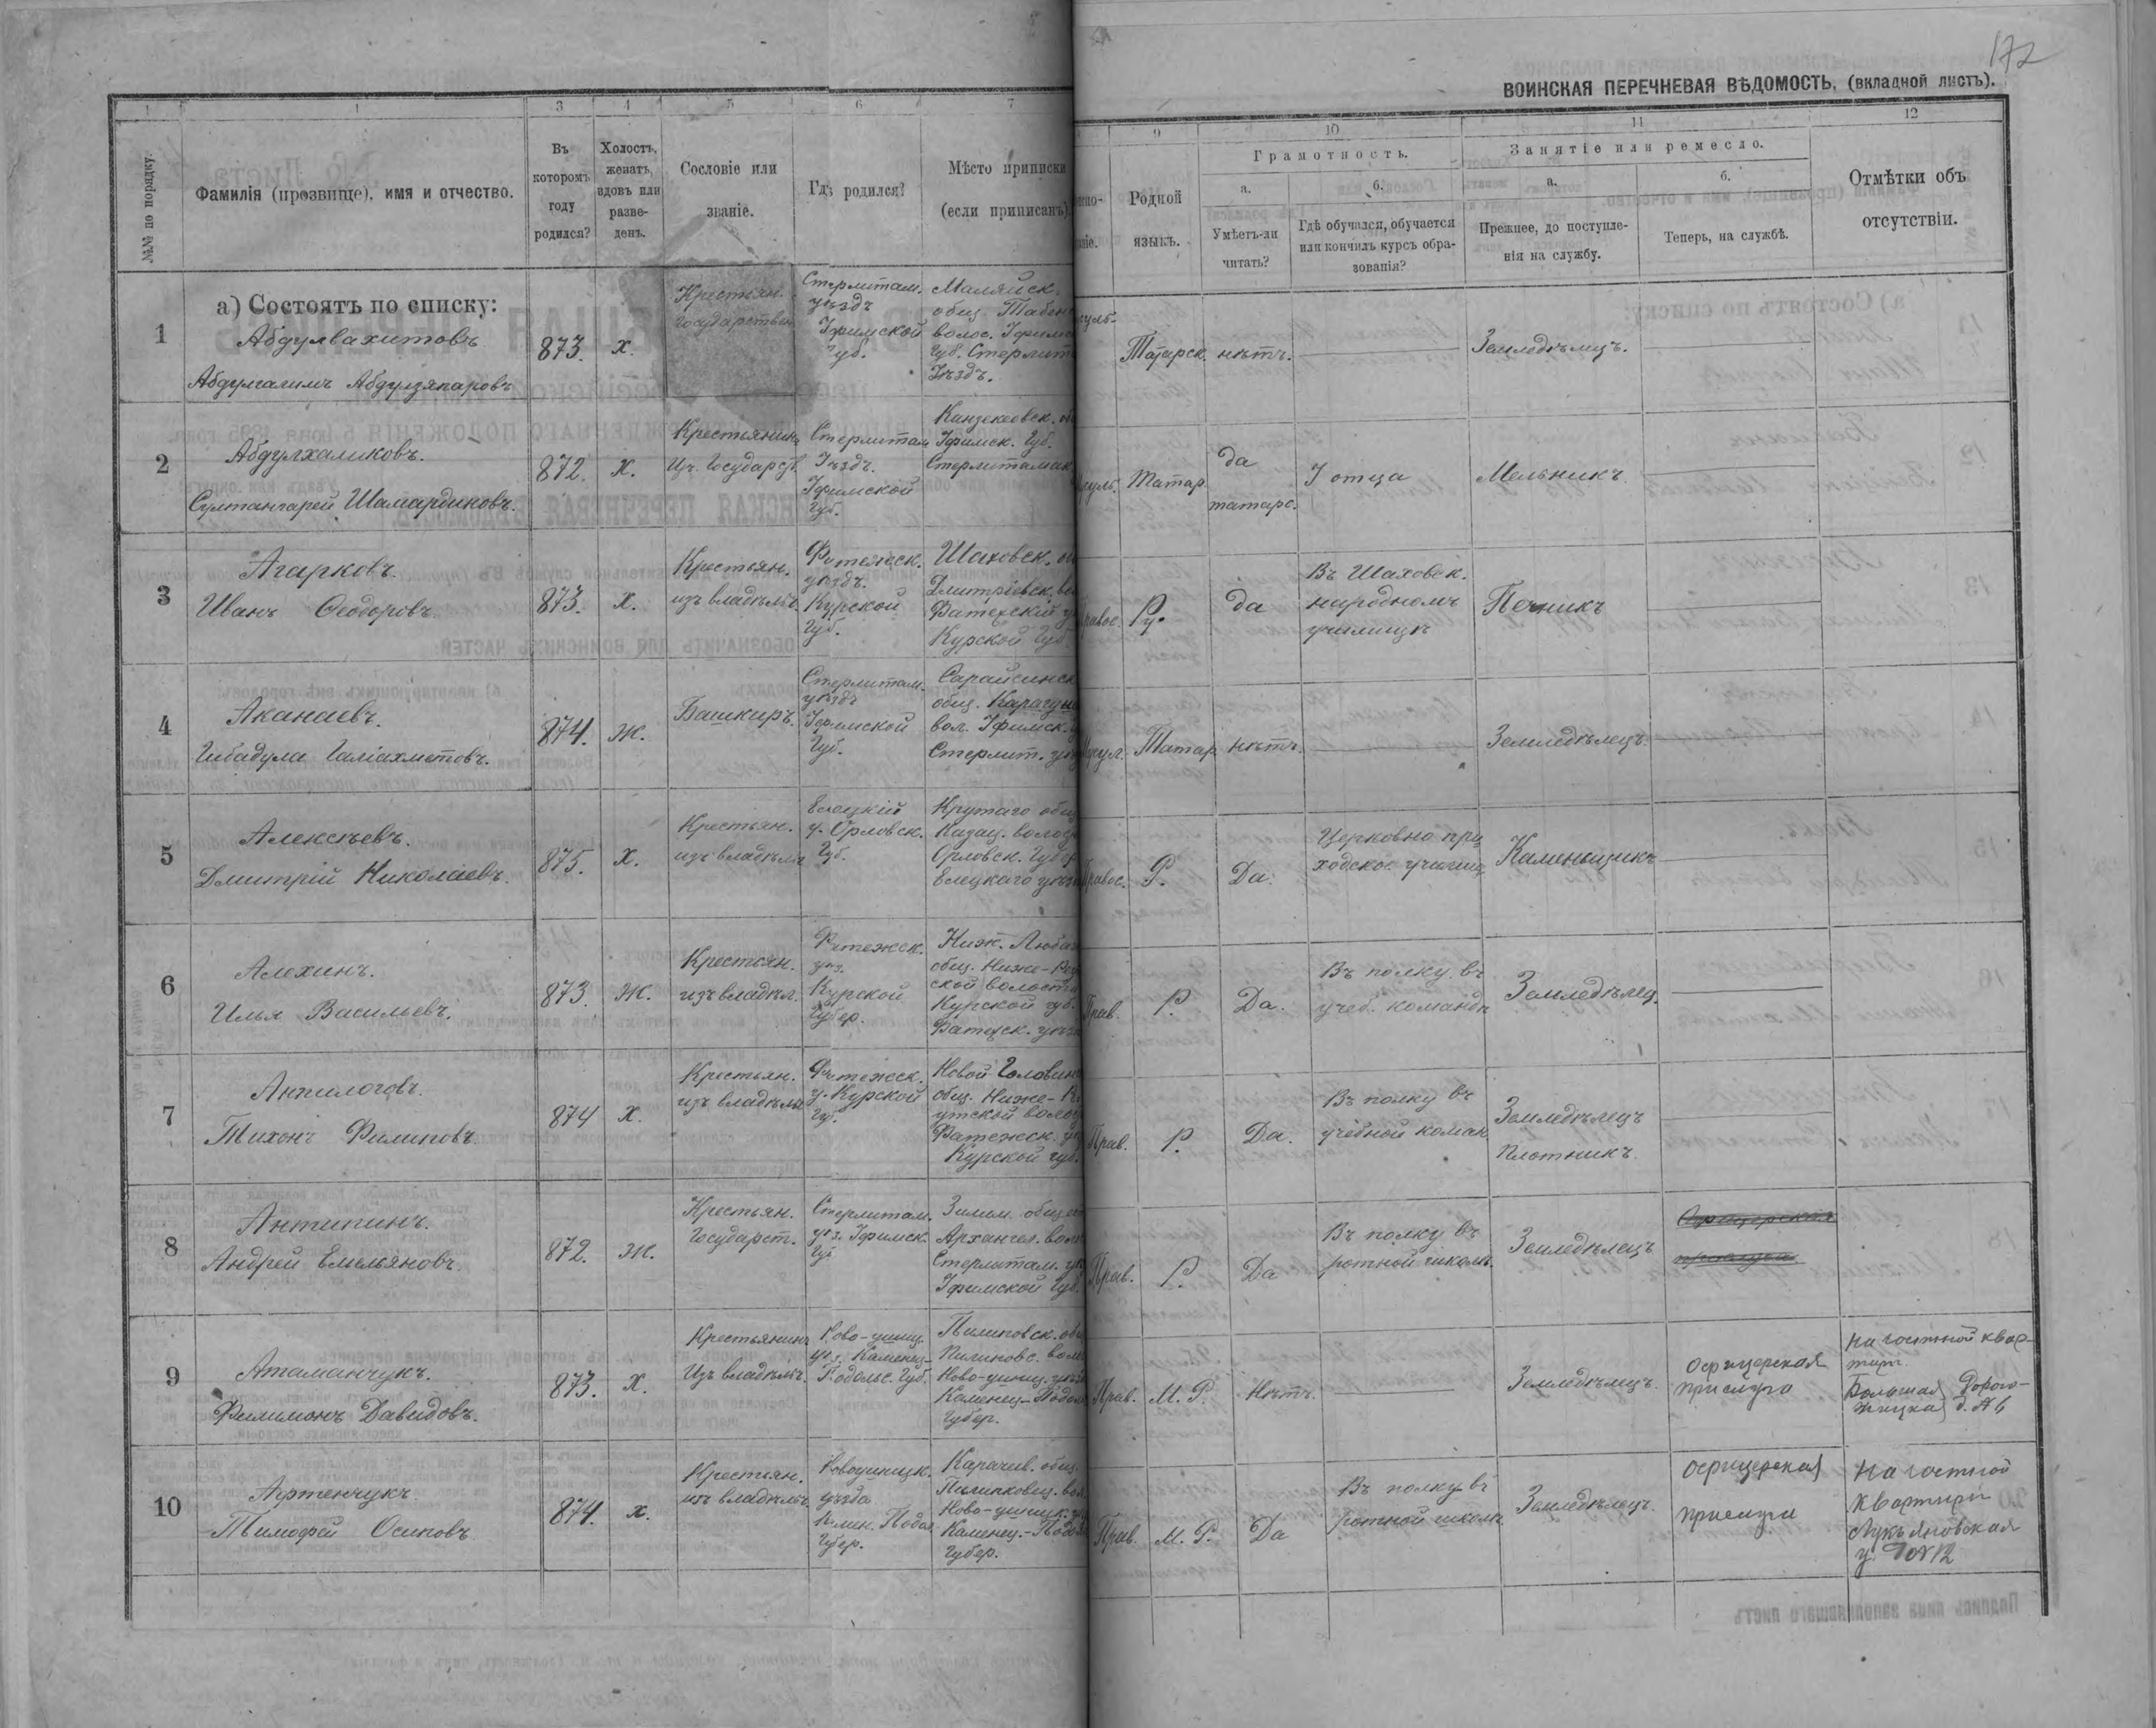 172
ВОИНСКАЯ ПЕРЕЧНЕВАЯ ВѢДОМОСТЬ, (вкладной листъ).
1 1 3 4 5 6 7
9 10 11 12
№№ по порядку.
Фамилія (прозвище), имя и отчество.
Въ которомъ году родился?
Холостъ, женатъ, вдовъ или разведенъ.
Сословіе или званіе.
Гдѣ родился?
Мѣсто приписки (если приписанъ).
Родной языкъ.
Грамотность.
а.
Умѣетъ-ли читать?
б.
Гдѣ обучался, обучается или кончилъ курсъ образованія?
Занятіе или ремесло.
а.
Прежнее, до поступленія на службу.
б.
Теперь, на службѣ.
Отмѣтки объ отсутствіи.
а) Состоятъ по списку:
1
Абдулвахитовъ
Абдулгалимъ Абдулзяпаровъ
873.
х.
Крестьян.
Государствен.
Стерлитам.
уѣздъ
Уфимской
Губ.
Маляйск.
общ. Табен
волос. Уфимс
Губ. Стерлит
Уѣздъ.
Татарск.
нѣтъ.
Земледѣлецъ.
2
Абдулхаликовъ.
Султангарей Шамардиковъ.
872.
х.
Крестьянинъ
Из. Государст.
Стерлитам
Уѣздъ.
Уфимской
Губ.
Канзекеевск. об
Уфимск. Губ.
Стерлитамак
Татар.
да
татарс.
У отца
Мельникъ.
3
Агарковъ.
Иванъ Ѳеодоровъ.
873.
х.
Крестьян.
изъ владѣльч
Фатежск.
уѣздъ.
Курской
Губ.
Шаховск. об
Дмитріевск. во
Фатежскій у
Курской Губ.
Правос.
Ру.
да
Въ Шаховск.
народномъ
училищѣ
Печникъ
4
Аканаевъ.
Гибадула Галіахметовъ.
874.
ж.
Башкиръ.
Стерлитам.
уѣздъ
Уфимской
Губ.
Сарайсинск
общ. Карагуш
вол. Уфимск.
Стерлит. уѣз
Мусул.
Татар.
нѣтъ.
Земледѣлецъ.
5
Алексѣевъ.
Дмитрій Николаевъ.
875.
х.
Крестьян.
изъ владѣльч
Елецкій
у. Орловск.
Губ.
Крутаго общ
Казац. волос
Орловск. Губер
Елецкаго уѣз
Правос.
Р.
Да.
Церковно при
ходское училищ
Каменьщикъ
6
Алехинъ.
Илья Васильевъ.
873.
ж.
Крестьян.
изъ владѣл.
Фатежск.
уѣз.
Курской
Губер.
Ниж. Люба
общ. Ниже-Реу
ской волости
Курской губ.
Фатежск. уѣз
Прав.
Р.
Да.
Въ полку въ
учеб. командѣ
Земледѣлец.
7
Анпилоговъ.
Тихонъ Филиповъ.
874
х.
Крестьян.
изъ владѣльч
Фатежск.
у. Курской
Губ.
Новой Головин
общ. Ниже-Ре
утской волос
Фатежск. уѣз
Курской губ.
Прав.
Р.
Да.
Въ полку въ
учебной коман
Земледѣлецъ
Плотникъ.
8
Антипинъ.
Андрей Емельяновъ.
872.
ж.
Крестьян.
Государст.
Стерлитам.
уѣз. Уфимск.
Гу.
Зилим. общест
Архангел. воло
Стерлитам. уѣз
Уфимской Губ.
Прав.
Р.
Да
Въ полку въ
ротной школѣ.
Земледѣлецъ
Офицерская
прислуга.
9
Атаманчукъ.
Филимонъ Давидовъ.
873.
х.
Крестьянинъ
Изъ владѣльч.
Ново-ушиц.
уѣз. Каменец-
Подольс. Губ.
Пилиповск. общ
Пилиповс. вол
Ново-ушиц. уѣз
Каменец-Подол
Губер.
Прав.
М. Р.
Нѣтъ.
Земледѣлецъ.
Офицерская
прислуга
На частной квар-
тирѣ.
Большая Дорого-
жицкая д. № 6
10
Артенчукъ
Тимофей Осиповъ.
874.
х.
Крестьян.
изъ владѣльч.
Новоушицк.
уѣзда
Камен. Подол.
Губер.
Карачив. общ.
Пилипковец. вол.
Ново-ушицк. уѣз
Каменец-Подол
Губер.
Прав.
М. Р.
Да
Въ полку въ
ротной школѣ
Земледѣлецъ.
Офицерская
прислуга
На частной
квартирѣ
Лукьяновская
у. д № 12